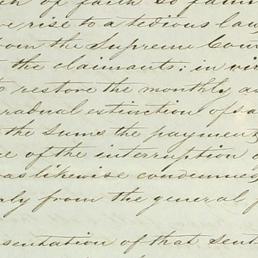 of faith so
rise to a tedious law
from the Supreme Cour
the claimants; in vir
to restore the monthly
gradual extinction of sa
the sums the payment
ce of the interruption o
was likewise condemned
ly from the general f
sentation of that sent